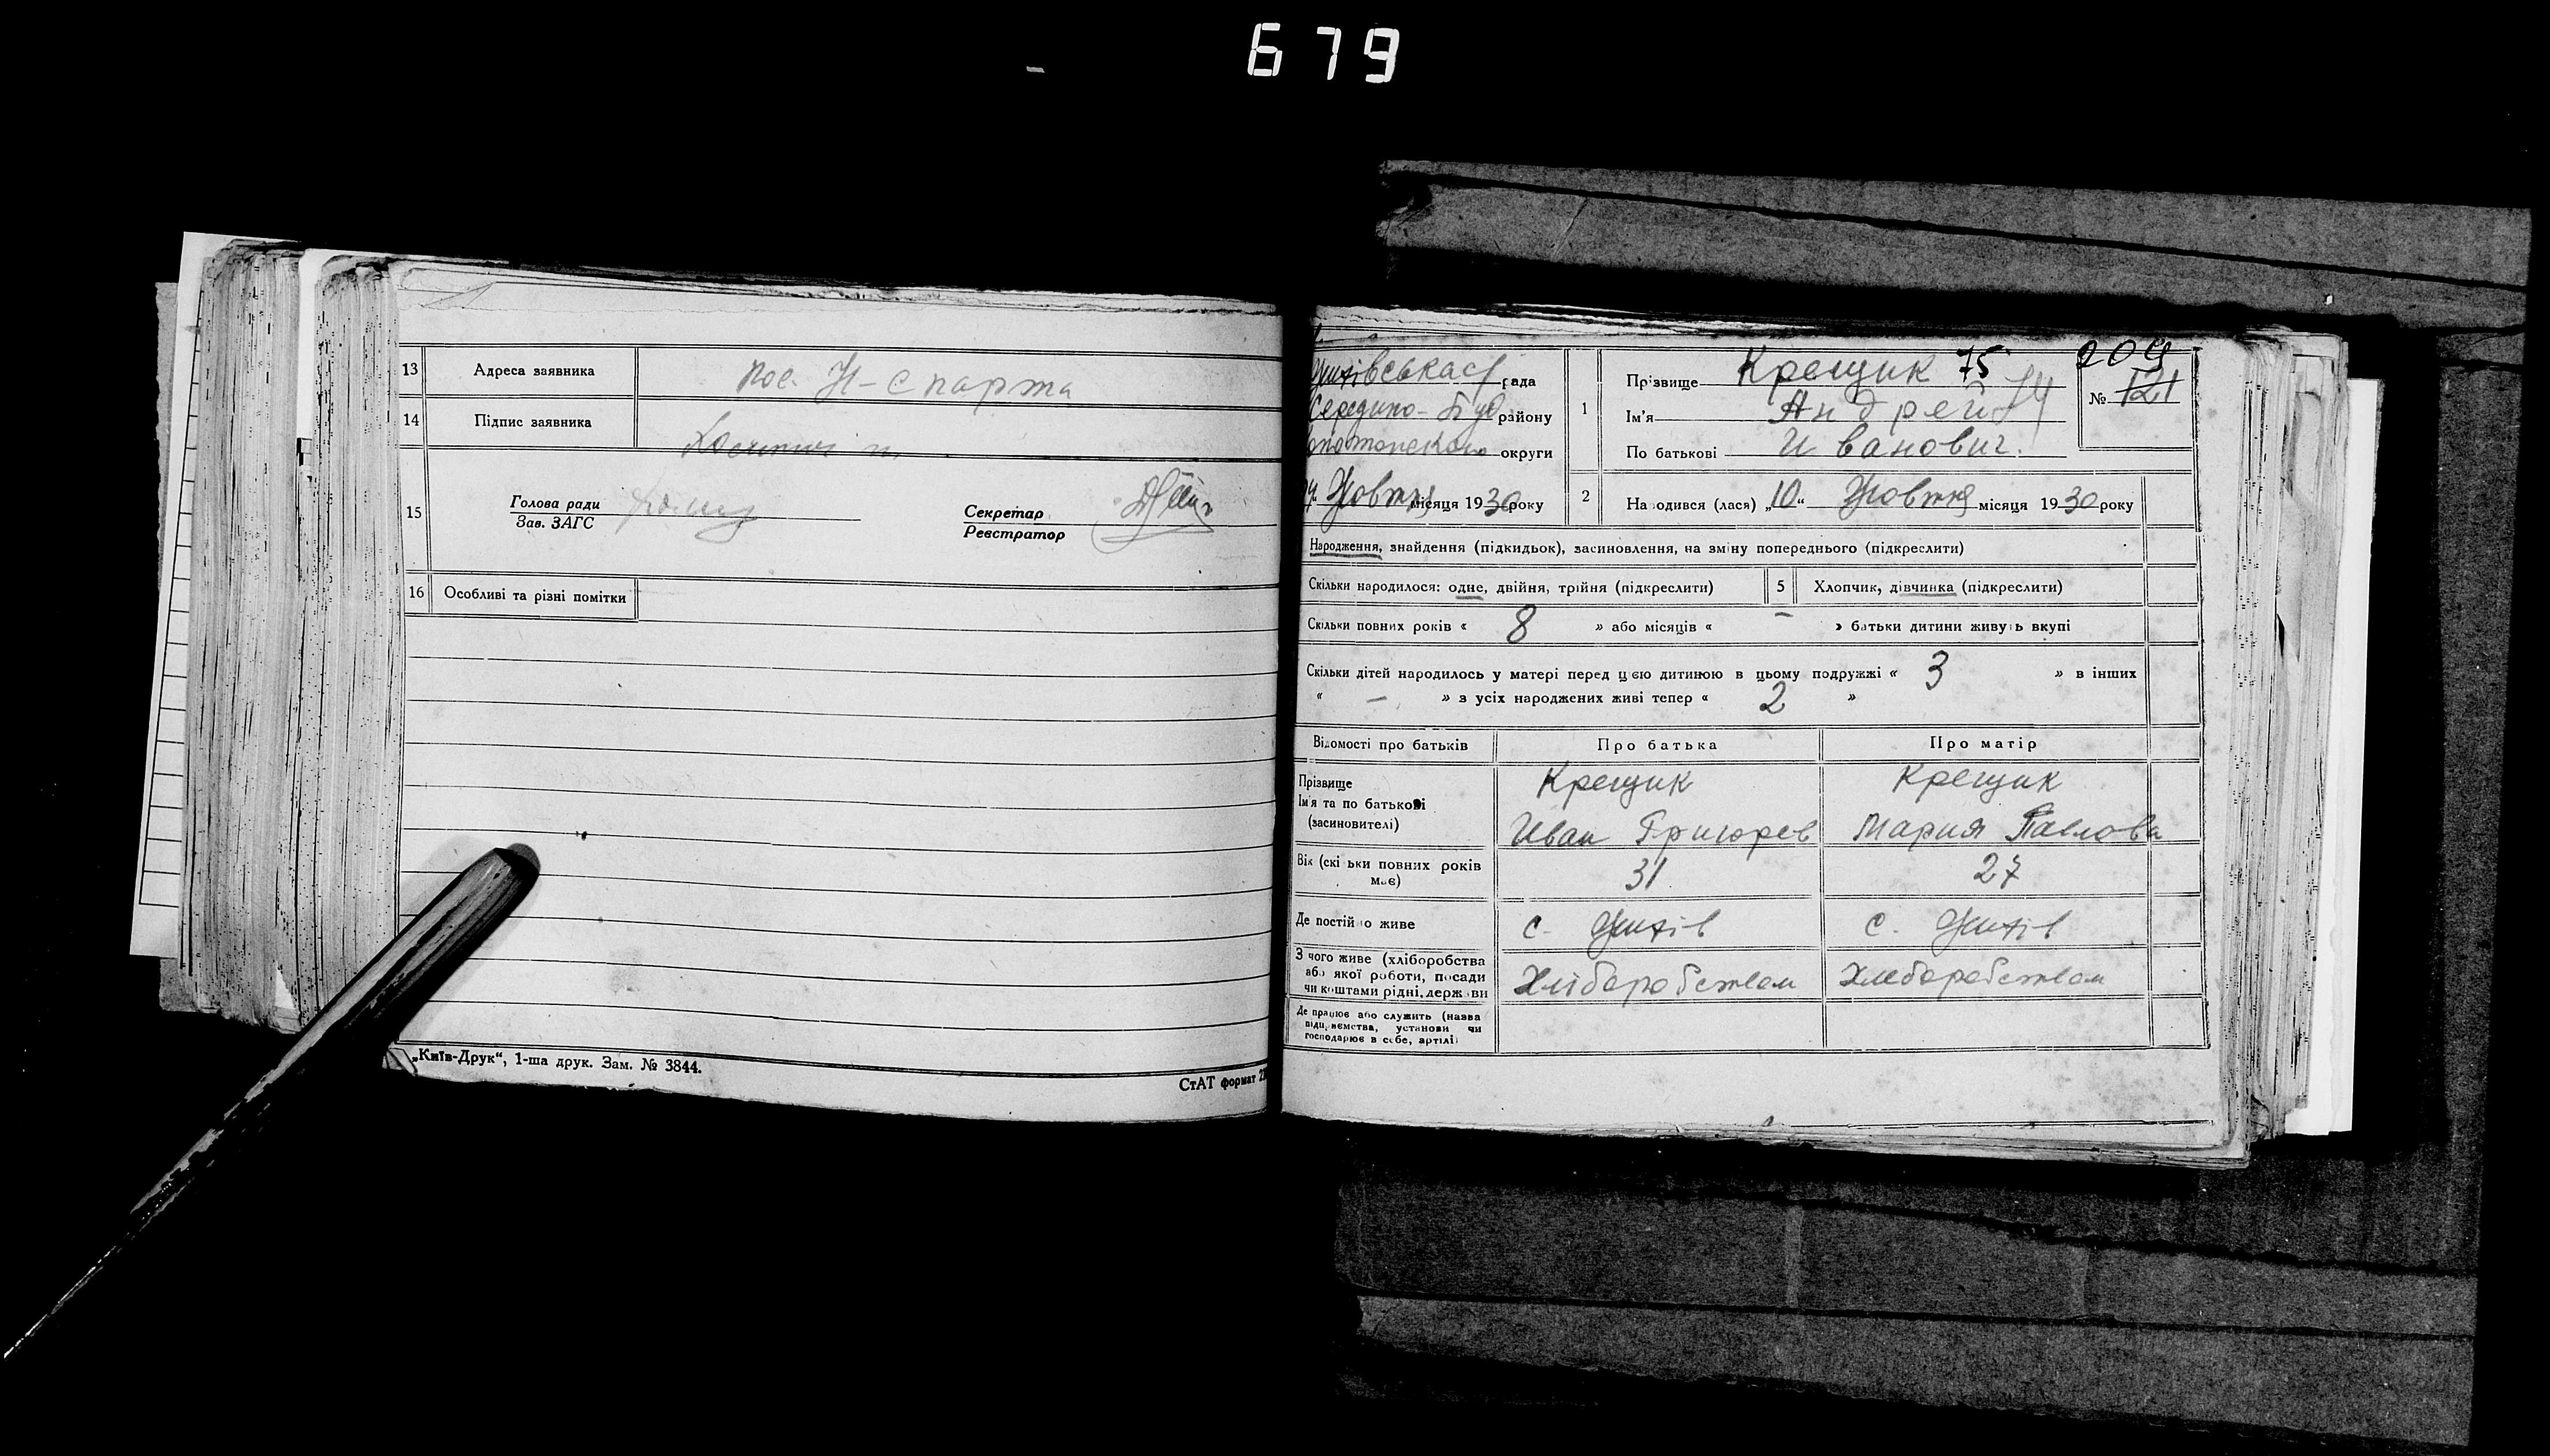 679
13 Адреса заявника пос. Н-Спарта
14 Підпис заявника
15 Голова ради
Зав. ЗАГС
Секретар
Реєстратор
16 Особливі та різні помітки
„Київ-Друк“, 1-ша друк. Зам. № 3844.
СтАТ формат
рада
Середино-Буд району
округи
Жовтня місяця 1930 року
1 Прізвище Крещик 75
Ім'я Андрей 74
По батькові Иванович.
209
№ 121
2 На одився (лася) „10“ Жовтня місяця 1930 року
Народження, знайдення (підкидьок), засиновлення, на зміну попереднього (підкреслити)
Скільки народилося: одне, двійня, трійня (підкреслити) 5 Хлопчик, дівчинка (підкреслити)
Скільки повних років « 8 » або місяців « – » батьки дитини живу ь вкупі
Скільки дітей народилось у матері перед цією дитиною в цьому подружжі « 3 » в інших
« – » з усіх народжених живі тепер « 2 »
Відомості про батьків Про батька Про матір
Прізвище Крещик Крещик
Ім'я та по батькові
(засновителі) Иван Григорев Мария Павлова
Вік (скі ьки повних років
має) 31 27
Де постійно живе с. Жихів с. Жихів
З чого живе (хліборобства
або якої роботи, посади
чи коштами рідні, держ ви Хліборобством Хлеборобством
Де працює або служить (назва
підприємства, установи чи
господарює в себе, артілі)